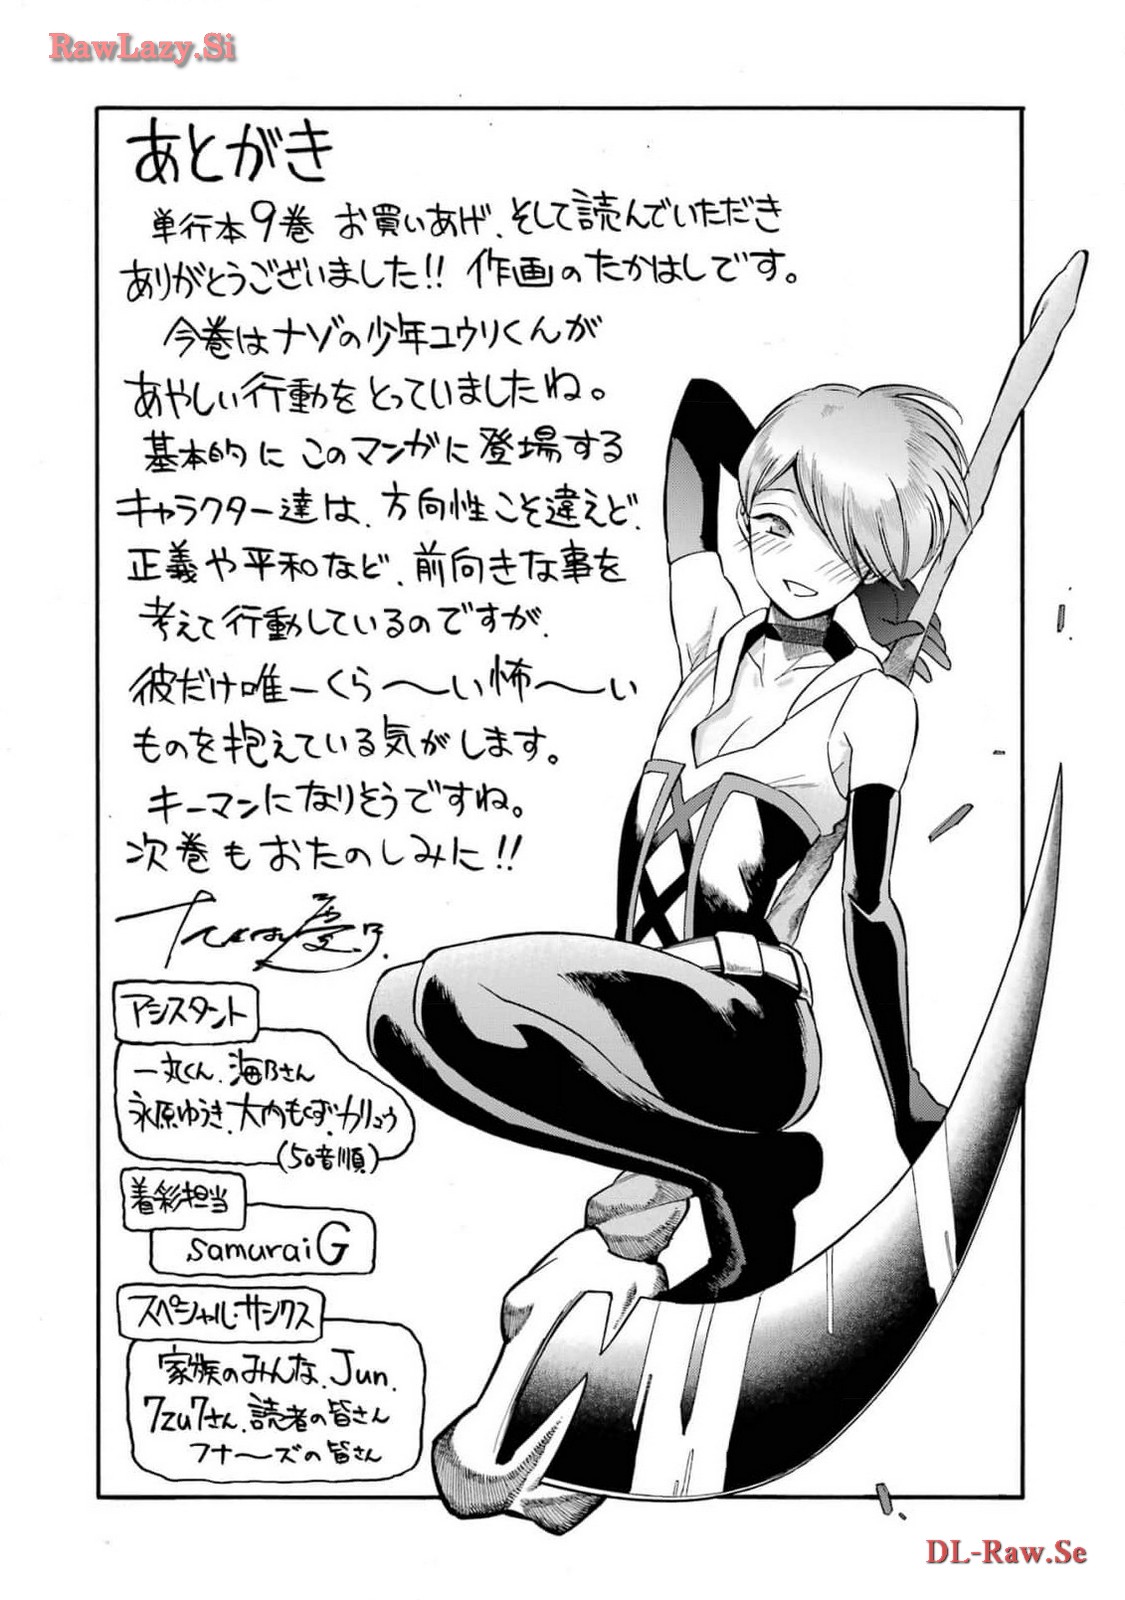 RawLazy.Si
あとがき
単行本9巻 お買いあげ、そして読んでいただき
ありがとうございました!! 作画のたかはしです。
今巻はナゾの少年ユウリくんが
あやしい行動をとっていましたね。
基本的に このマンガに登場する
キャラクター達は、方向性こそ違えど、
正義や平和など、前向きな事を
考えて行動しているのですが、
彼だけ唯一くら〜い怖〜い
ものを抱えている気がします。
キーマンになりそうですね。
次巻もおたのしみに!!
アシスタント
一丸くん、海乃さん
永原ゆうき、大内もくず、カリュウ
(50音順)
着彩担当
samuraiG
スペシャル・サンクス
家族のみんな、Jun、
7zu7さん、読者の皆さん
フナ〜ズの皆さん
DL-Raw.Se